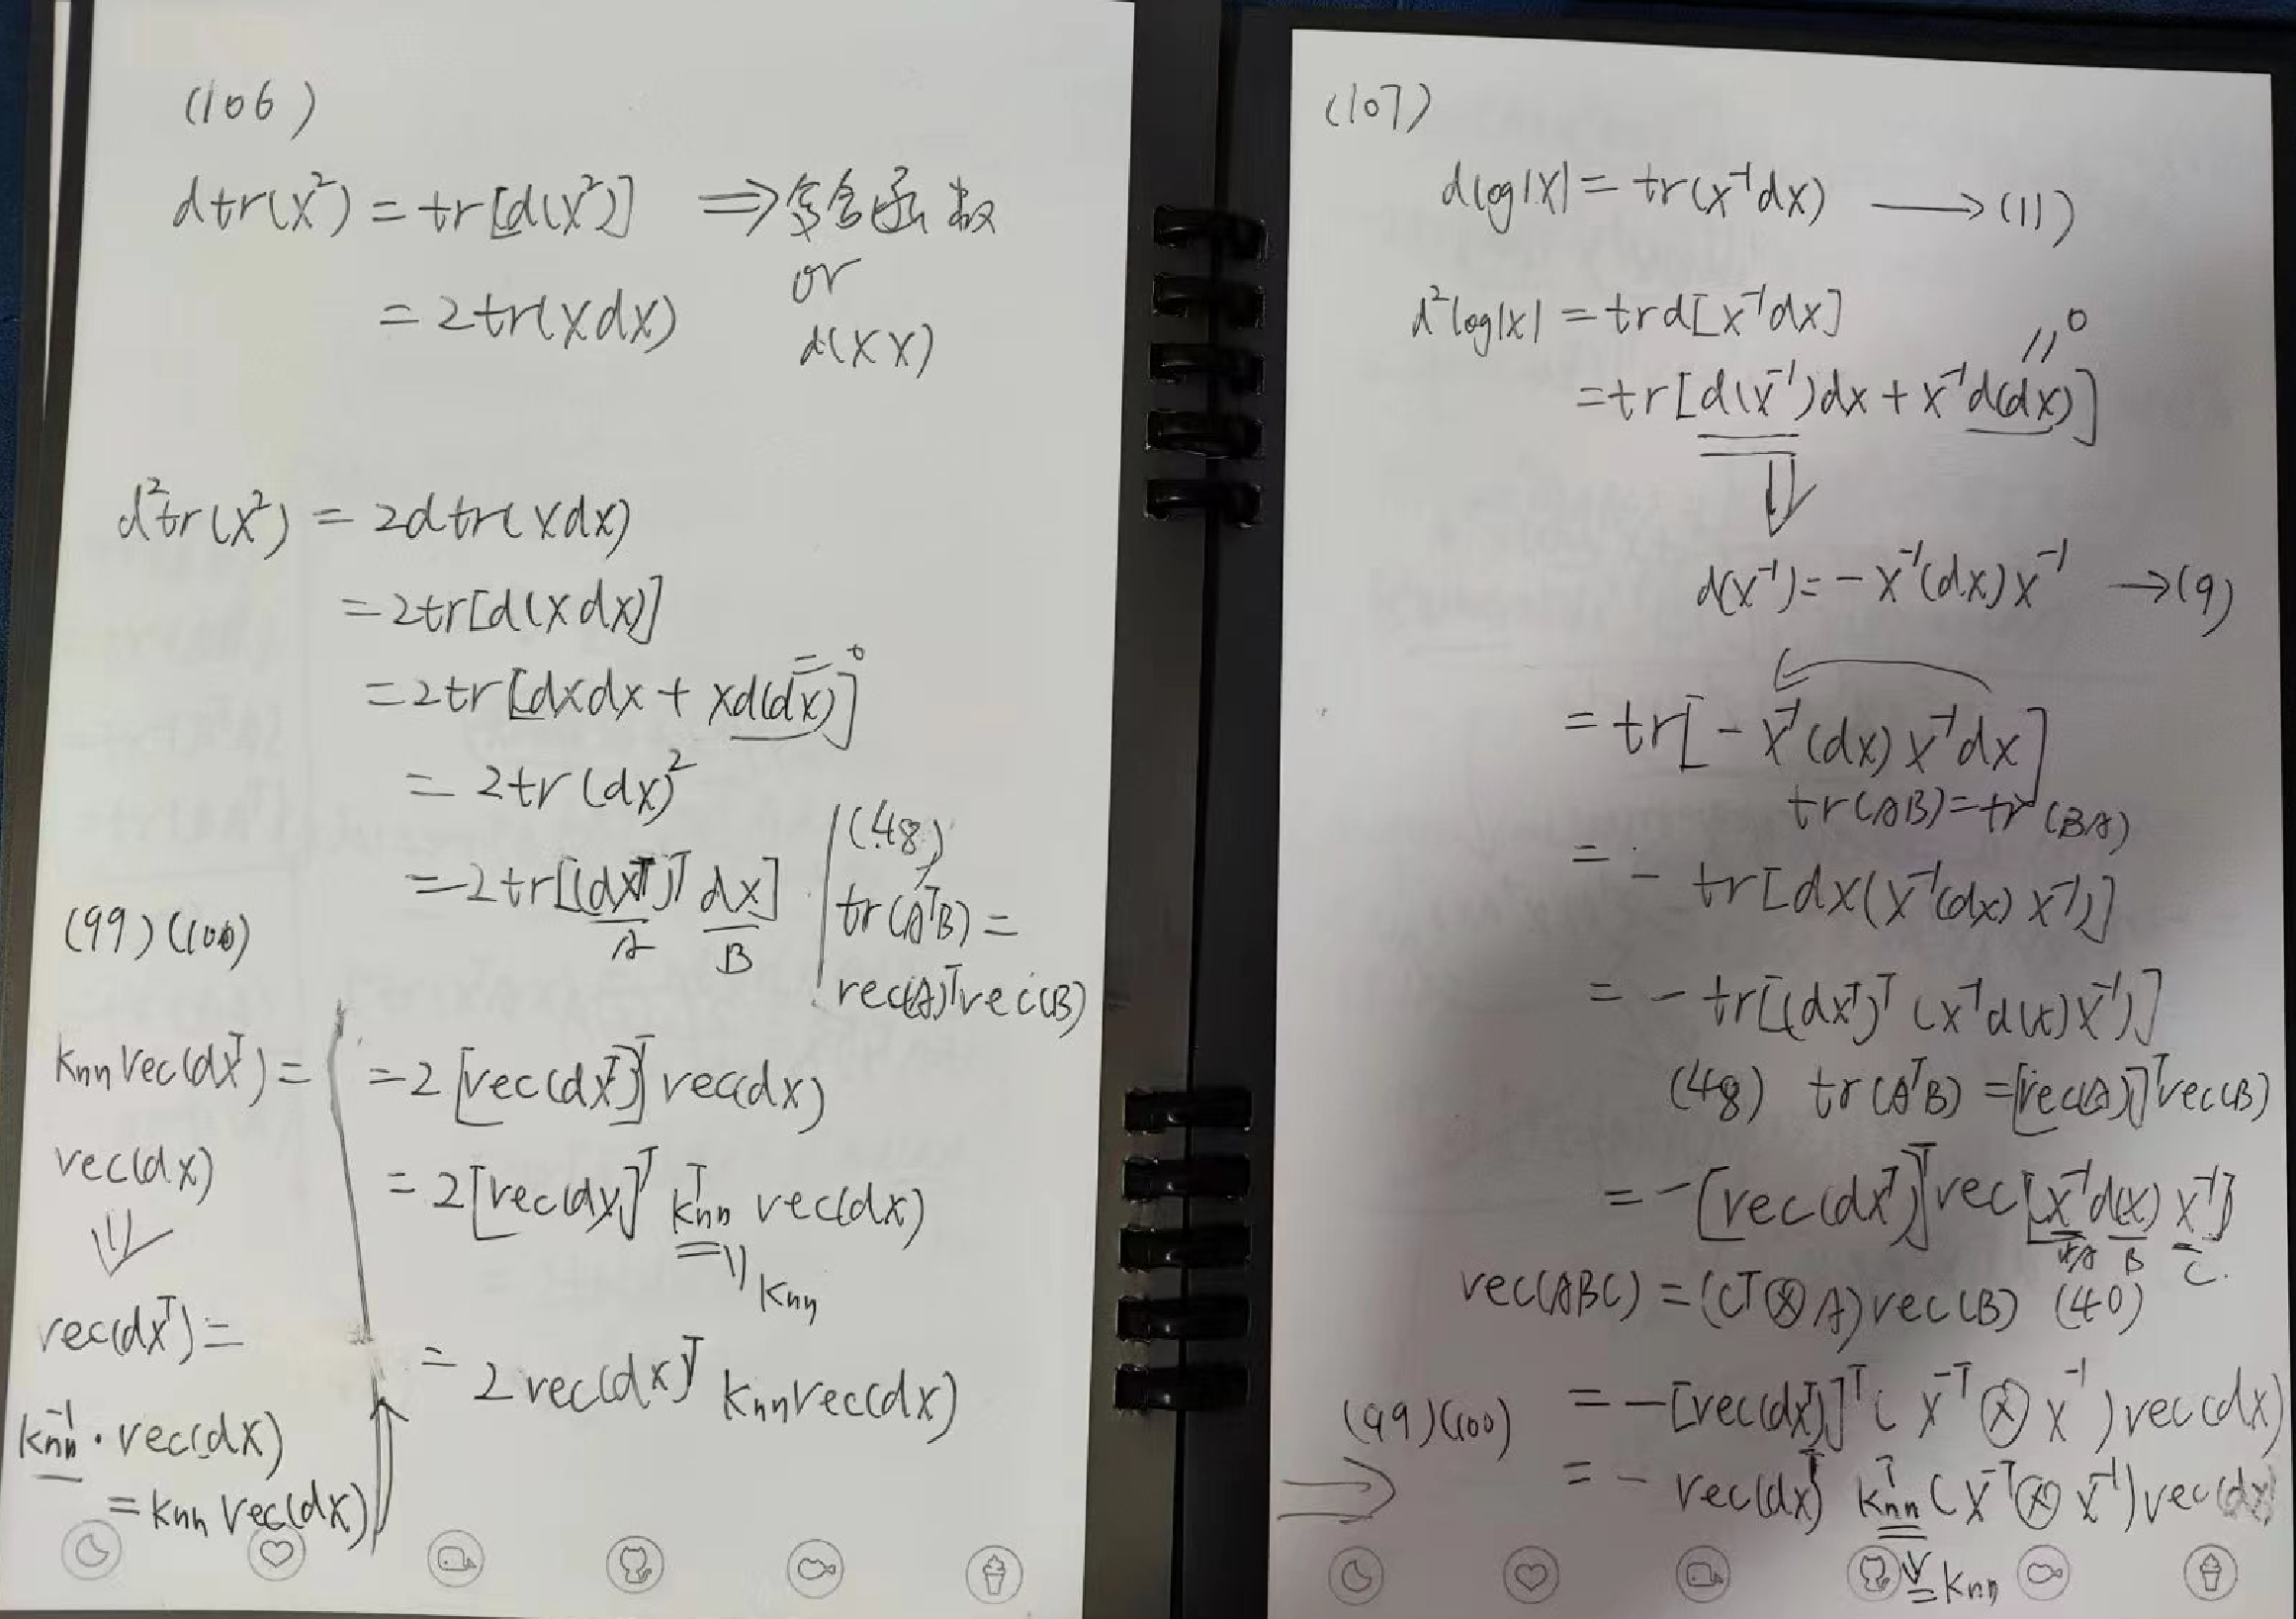 (106)
dtr(X²) = tr[d(X²)] ⇒ 复合函数
or
= 2tr(Xdx) d(XX)
d²tr(X²) = 2dtr(Xdx)
= 2tr[d(Xdx)]
= 2tr[dxdx + Xd(dx)] =0
= 2tr(dx)²
= 2tr[(dxᵀ)ᵀ dx]
A B
(48)
tr(AᵀB) =
vec(A)ᵀvec(B)
(99)(100)
Knn vec(dxᵀ) =
vec(dx)
⇓
vec(dxᵀ) =
Knn⁻¹ · vec(dx)
= Knn vec(dx)
= 2[vec(dxᵀ)]ᵀ vec(dx)
= 2[vec(dx)]ᵀ Knnᵀ vec(dx)
= Knn
= 2vec(dx)ᵀ Knn vec(dx)
(107)
dlog|X| = tr(X⁻¹dx) → (11)
d²log|X| = trd[X⁻¹dx]
= tr[d(X⁻¹)dx + X⁻¹d(dx)] =0
⇓
d(X⁻¹) = -X⁻¹(dx)X⁻¹ → (9)
= tr[-X⁻¹(dx)X⁻¹dx]
tr(AB) = tr(BA)
= - tr[dx(X⁻¹(dx)X⁻¹)]
= - tr[(dxᵀ)ᵀ (X⁻¹d(x)X⁻¹)]
(48) tr(AᵀB) = [vec(A)]ᵀvec(B)
= -[vec(dxᵀ)]ᵀvec[X⁻¹d(x)X⁻¹]
A B C.
vec(ABC) = (Cᵀ⊗A)vec(B) (40)
= -[vec(dxᵀ)]ᵀ(X⁻ᵀ⊗X⁻¹)vec(dx)
(99)(100) ⇒ = - vec(dx)ᵀ Knnᵀ(X⁻ᵀ⊗X⁻¹)vec(dx)
= Knn